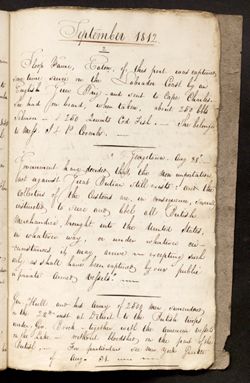 September 1812
2
Sloop Fame, Eaton, of this port, was captured
some time since on the Labrador Coast by an
English Privr Brig - and sent to Cape Charles -
She had from board, when taken, about 260 bbls
Salmon - & 260 Quintls Cod Fish. - She belonged
to Mess. A & P Coombs. -
Georgetown Aug 28
Government have decided that the non importation
act against Great Britain still exists: and the
collectors of the Customs are, in consequence,
instructed to seize and libel all British
Merchandize, brought into the United States,
in whatever way, or under whatever cir-
cumstances it may arrive - excepting such
only as shall have been captured by our public
& private armed vessels. -
Gen. Hull and his Army of 2500 men surrendered
on the at Detroit to the British troops
under Gen. Brock - together with the American vessels
on the Lake - without bloodshed on the part of the
British. - For particulars see New York Gazette
of Aug. 31. -